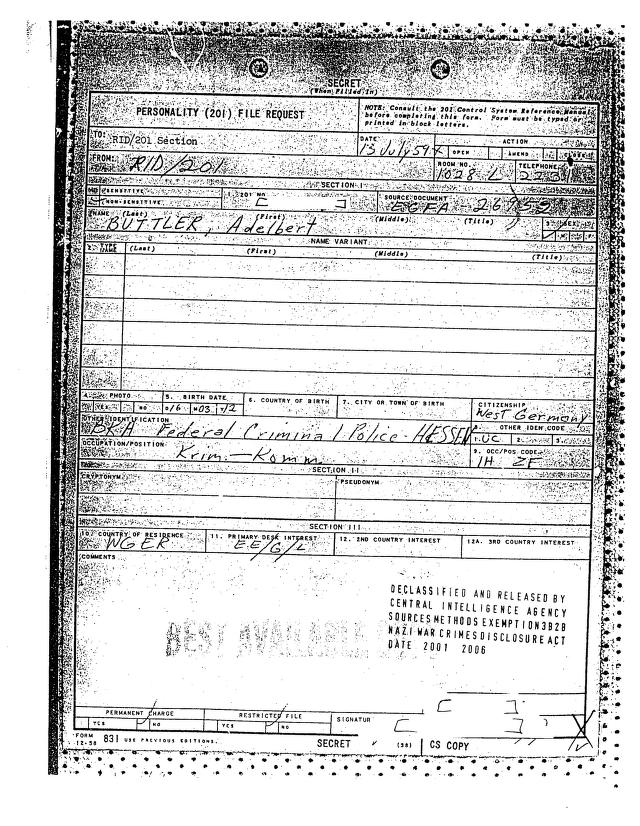 SECRET
(When Filled In)
PERSONALITY (201) FILE REQUEST
NOTE: Consult the 201 Control System Reference Manual
before completing this form. Form must be typed or
printed in block letters.
TO:
RID/201 Section
DATE
13 July 59
ACTION
OPEN
AMEND
FROM:
RID/201
ROOM NO.
1028 L
TELEPHONE
2231
SECTION I
SENSITIVE
NON-SENSITIVE
1. 201 NO.
SOURCE DOCUMENT
EGFA-26952
NAME (Last) (First) (Middle) (Title)
BUTTLER, Adelbert
NAME VARIANT
TYPE
NAME
(Last) (First) (Middle) (Title)
4. PHOTO
YES NO
5. BIRTH DATE
D/6 M03 Y12
6. COUNTRY OF BIRTH
7. CITY OR TOWN OF BIRTH
CITIZENSHIP
West Germany
OTHER IDENTIFICATION
BKA Federal Criminal Police-HESSEN
OTHER IDEN. CODE
1. UC 2. 3.
OCCUPATION/POSITION
Krim.-Komm.
9. OCC/POS. CODE
IH ZF
SECTION II
CRYPTONYM
PSEUDONYM
SECTION III
10. COUNTRY OF RESIDENCE
WGER
11. PRIMARY DESK INTEREST
EE/G/L
12. 2ND COUNTRY INTEREST
12A. 3RD COUNTRY INTEREST
COMMENTS
DECLASSIFIED AND RELEASED BY
CENTRAL INTELLIGENCE AGENCY
SOURCES METHODS EXEMPTION 3B2B
NAZI WAR CRIMES DISCLOSURE ACT
DATE 2001 2006
BEST AVAILABLE
PERMANENT CHARGE
YES NO
RESTRICTED FILE
YES NO
SIGNATUR
FORM
12-58 831 USE PREVIOUS EDITIONS.
SECRET
(38)
CS COPY